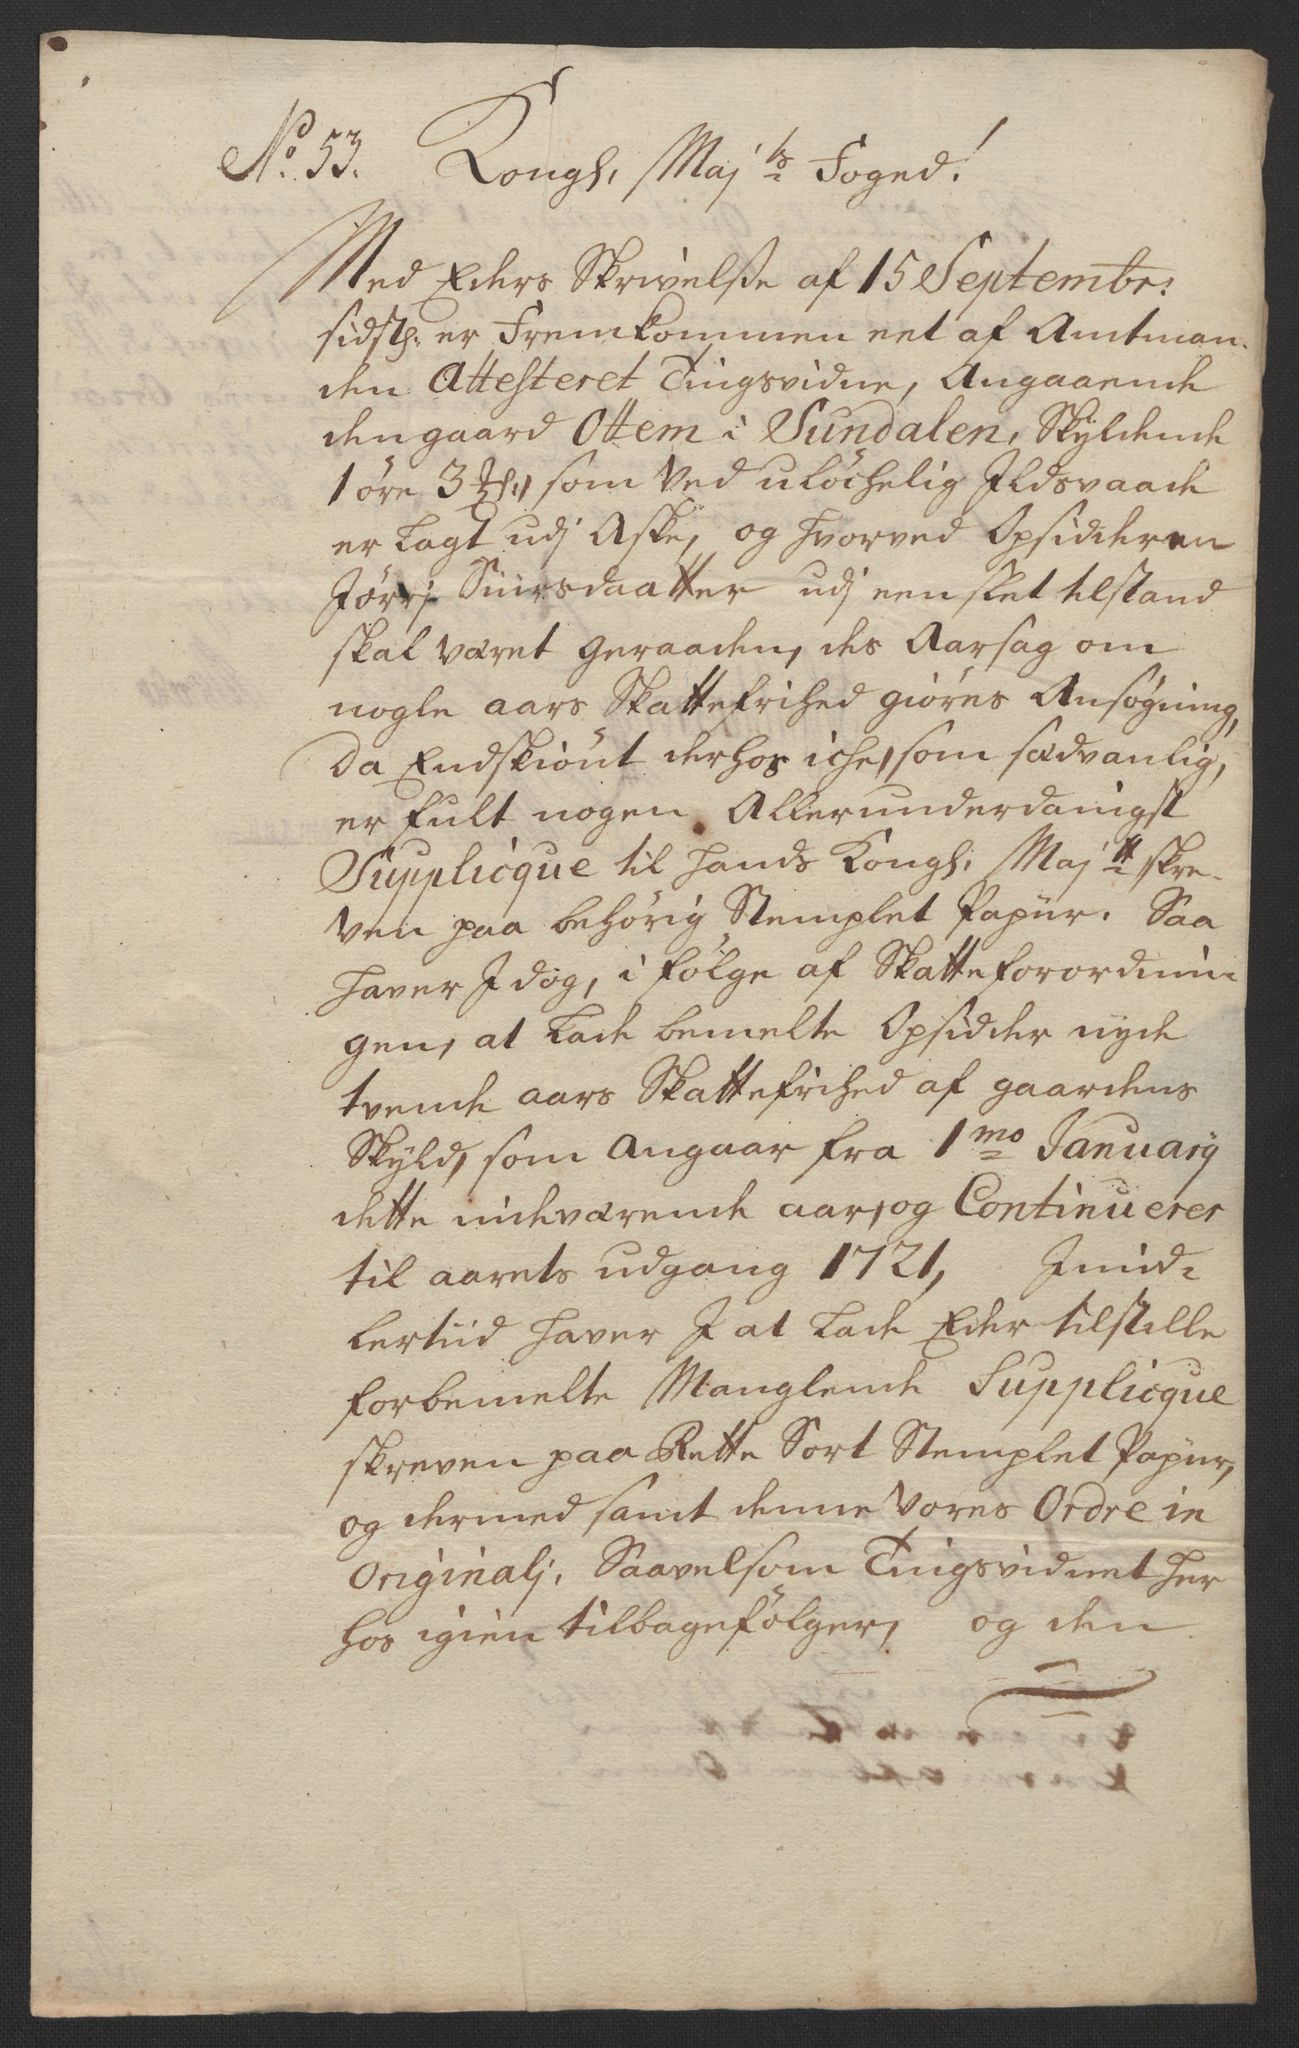 No. 53. Kongl. Maj.ts Foged!
Med Eders Skrivelse af 15 Septembr:
sidstl: er Fremkommen eet af Amtman-
den Attesteret Tingsvidne, Angaaende
den gaard Ottem i Sundalen, Skyldende
1 öre 3 som Ved ulöchelig Ildsvaade
er Lagt udj Aske, og hvorved Opsidderen
Siursdaatter udj een slet tilstand
skal været geraaden, des Aarsag om
nogle aars Skattefrihed giöres Ansögning,
Da Endskiönt derhos iche, som sædvanlig,
er fult nogen Allerunderdanigst
Supplicque til hands Kongl. Maj.tt skre-
ven paa behörig Stemplet Papiir. Saa
haver I dog, i fölge af Skatteforordnin-
gen, at Lade bemelte Opsidder nyde
tvende aars Skattefrihed af gaardens
Skyld, som Angaar fra 1mo Januarij
dette nideværende aar, og Continuerer
til aarets udgang 1721, Imid-
lertiid haver I at Lade Eder tilstille
forbemelte Manglende Supplicque
skreven paa Rette Sort Stemplet Papiir,
og dermed samt denne Vores Ordre in
Originalj, Saavelsom Tingsvidnet her
hos igien tilbagefölger, og den